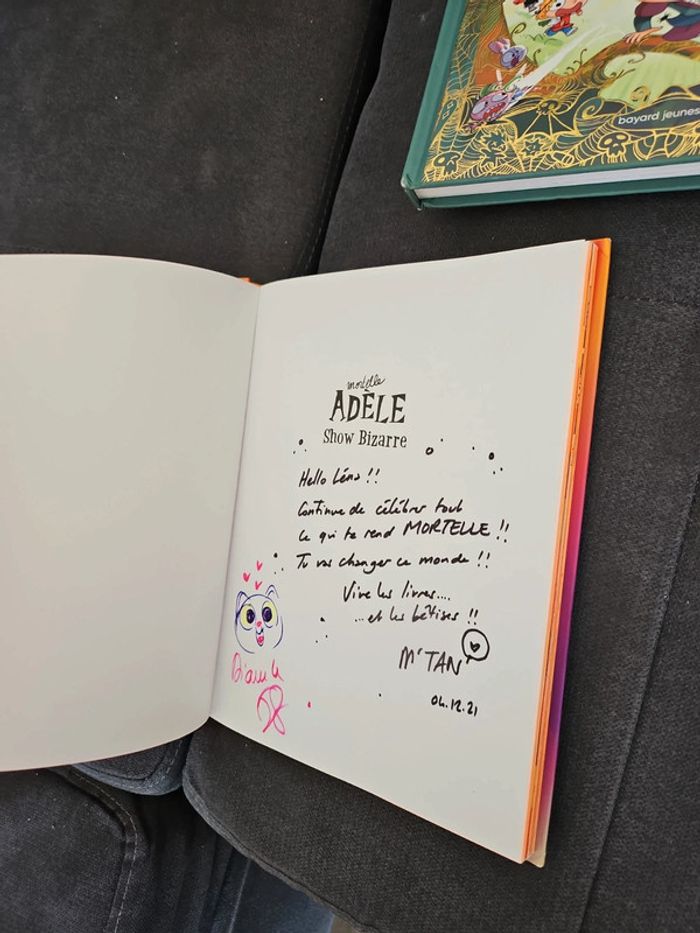 bayard jeunes
mortelle
ADÈLE
Show Bizarre
Hello Léna !!
Continue de célébrer tout
ce qui te rend MORTELLE !!
Tu vas changer ce monde !!
Vive les livres....
...et les bêtises !!
Mr TAN
04.12.21